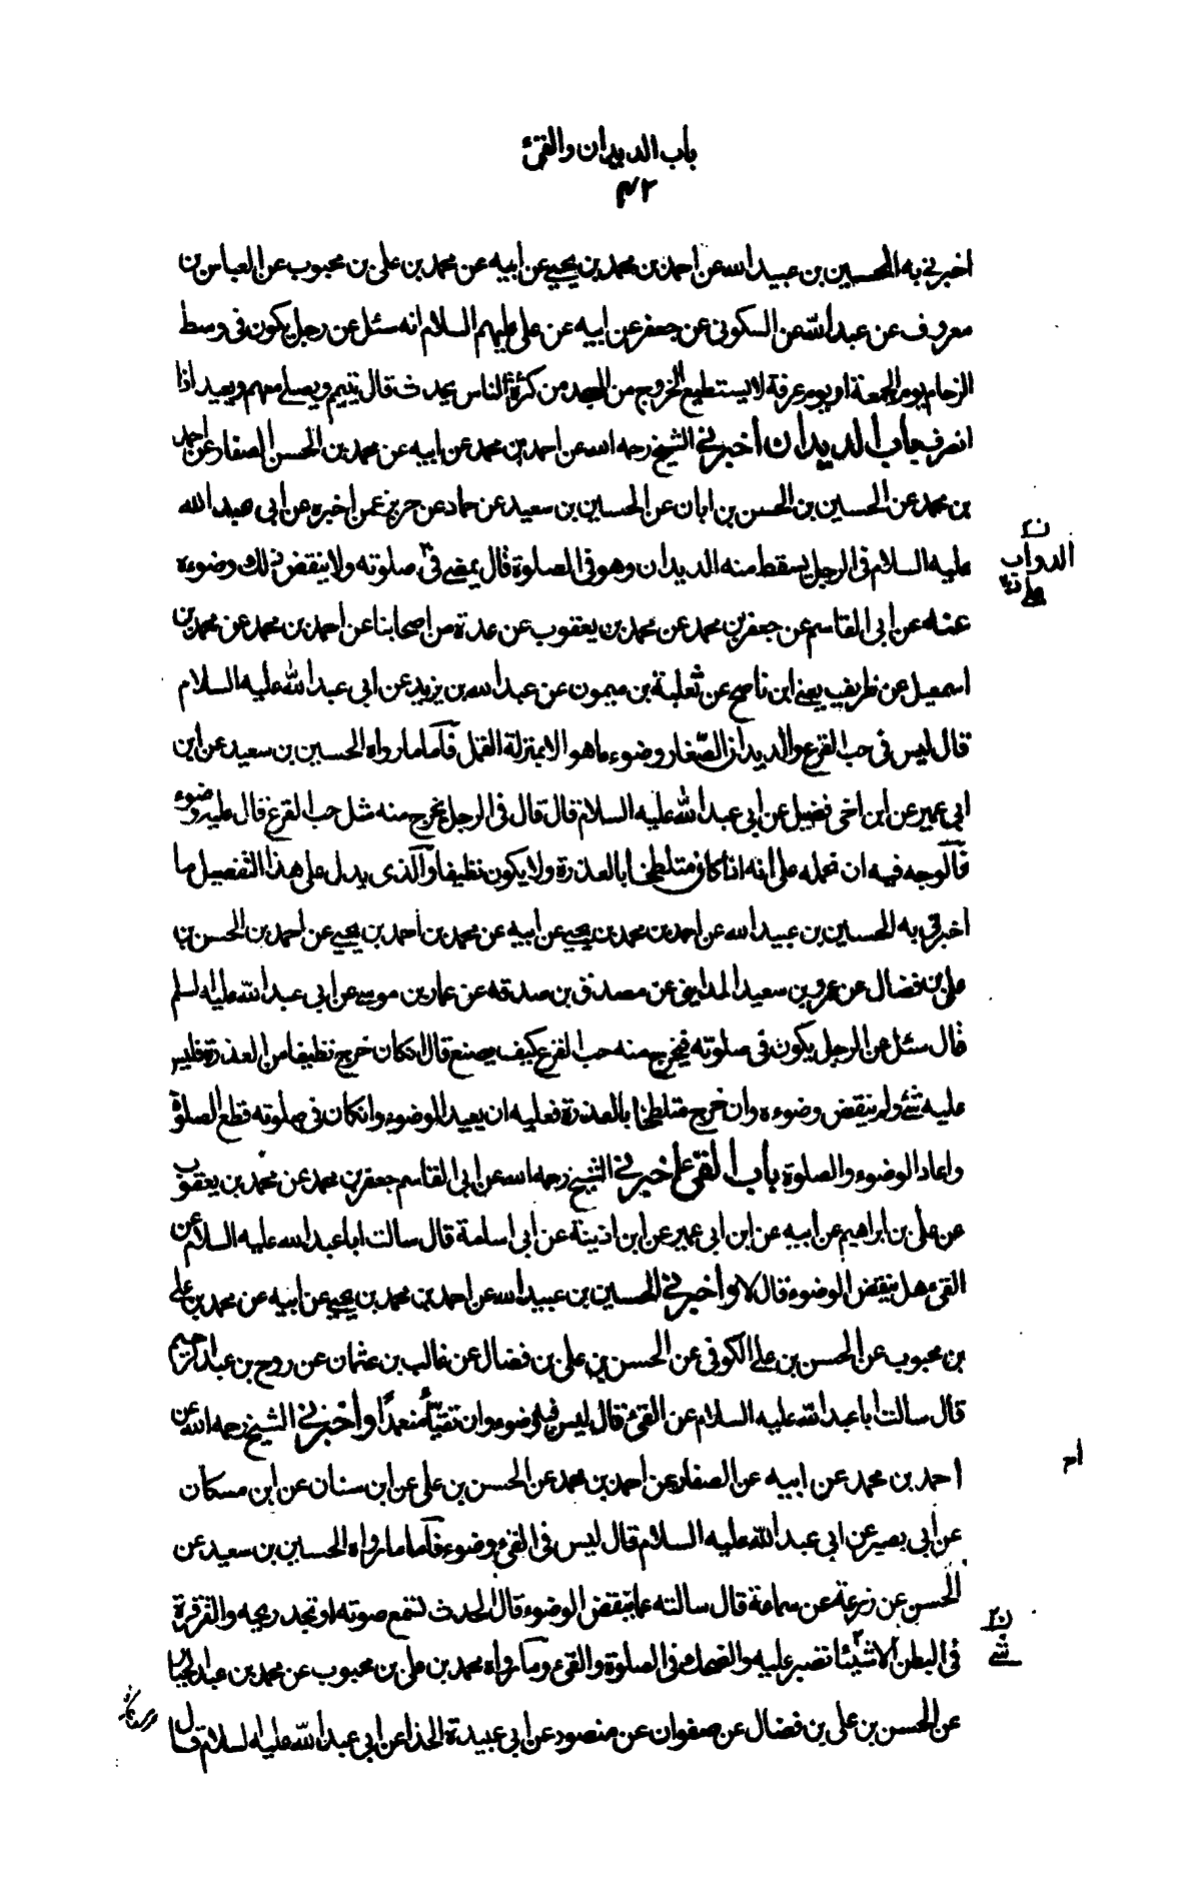 باب الديدان والقئ
٤٢
اخبرني به الحسين بن عبيد الله عن احمد بن محمد بن يحيى عن ابيه عن محمد بن على بن محبوب عن العباس بن
معروف عن عبد الله عن السكونى عن جعفر عن ابيه عن على عليهم السلام انه سئل عن رجل يكون فى وسط
الزحام يوم الجمعة او يوم عرفة لا يستطيع الخروج من المسجد من كثرة الناس يحدث قال يتيمم ويصلى معهم ويعيد اذا
انصرف باب الديدان اخبرني الشيخ رحمه الله عن احمد بن محمد عن ابيه عن محمد بن الحسن الصفار عن احمد
بن محمد عن الحسين بن الحسن بن ابان عن الحسين بن سعيد عن حماد عن حريز عمن اخبره عن ابى عبد الله
عليه السلام فى الرجل يسقط منه الديدان وهو فى الصلوة قال يمضى فى صلوته ولا ينقض ذلك وضوءه
الدواب
عنه عن ابى القاسم عن جعفر بن محمد عن محمد بن يعقوب عن عدة من اصحابنا عن احمد بن محمد عن محمد بن
اسمعيل عن ظريف يعنى ابن ناصح عن ثعلبة بن ميمون عن عبد الله بن يزيد عن ابى عبد الله عليه السلام
قال ليس فى حب القرع والديدان الصغار وضوء ما هو الا بمنزلة القمل فاما ما رواه الحسين بن سعيد عن ابن
ابى عمير عن ابن اخى فضيل عن ابى عبد الله عليه السلام قال قال فى الرجل يخرج منه مثل حب القرع قال عليه وضوء
فالوجه فيه ان نحمله على انه اذا كان متلطخا بالعذرة ولا يكون نظيفا والذى يدل على هذا التفصيل ما
اخبرنى به الحسين بن عبيد الله عن احمد بن محمد بن يحيى عن ابيه عن محمد بن احمد بن يحيى عن احمد بن الحسن بن
على بن فضال عن عمرو بن سعيد المداينى عن مصدق بن صدقه عن عمار بن موسى عن ابى عبد الله عليه السلم
قال سئل عن الرجل يكون فى صلوته فيخرج منه حب القرع كيف يصنع قال ان كان خرج نظيفا من العذرة فليس
عليه شئ ولم ينقض وضوءه وان خرج متلطخا بالعذرة فعليه ان يعيد الوضوء وان كان فى صلوته قطع الصلوة
واعاد الوضوء والصلوة باب القئ اخبرني الشيخ رحمه الله عن ابى القاسم جعفر بن محمد عن محمد بن يعقوب
عن على بن ابراهيم عن ابيه عن ابن ابى عمير عن ابن اذينة عن ابى اسامة قال سالت ابا عبد الله عليه السلام عن
القئ هل ينقض الوضوء قال لا واخبرني الحسين بن عبيد الله عن احمد بن محمد بن يحيى عن ابيه عن محمد بن على
بن محبوب عن الحسن بن على الكوفى عن الحسن بن على بن فضال عن غالب بن عثمان عن روح بن عبد الرحيم
قال سالت ابا عبد الله عليه السلام عن القئ قال ليس فيه وضوء وان تقيأ متعمدا واخبرني الشيخ رحمه الله عن
احمد بن محمد عن ابيه عن الصفار عن احمد بن محمد عن الحسن بن على عن ابن سنان عن ابن مسكان
عن ابى بصير عن ابى عبد الله عليه السلام قال ليس فى القئ وضوء فاما ما رواه الحسين بن سعيد عن
الحسن عن زرعة عن سماعة قال سالته عما ينقض الوضوء قال الحدث تسمع صوته او تجد ريحه والقرقرة
فى البطن الا شيئا تصبر عليه والضحك فى الصلوة والقئ وما رواه محمد بن على بن محبوب عن محمد بن عبد الجبار
عن الحسن بن على بن فضال عن صفوان عن منصور عن ابى عبيدة الحذا عن ابى عبد الله عليه السلام قال